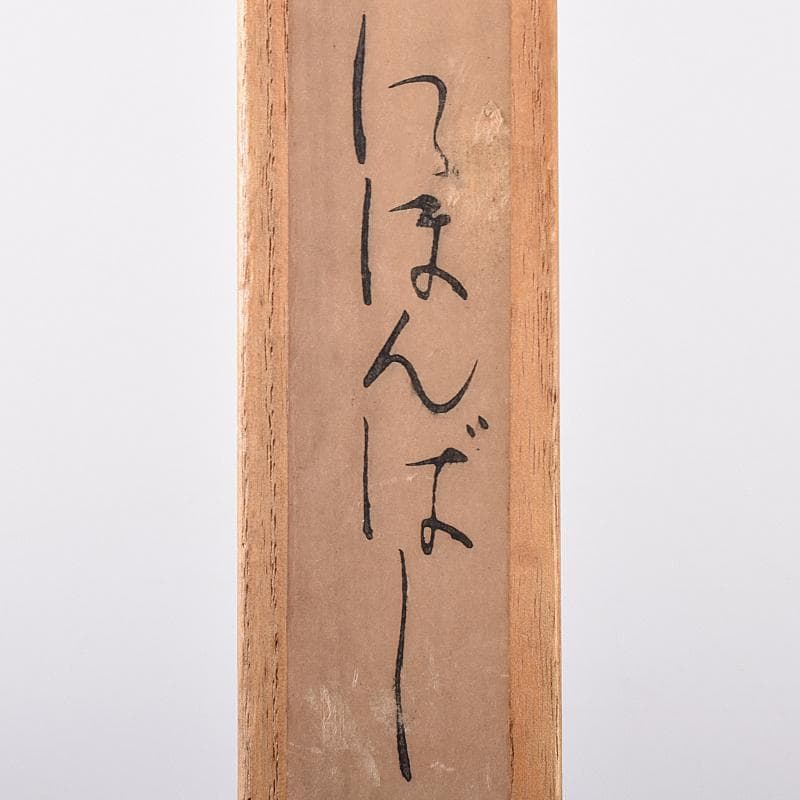 にほんばし